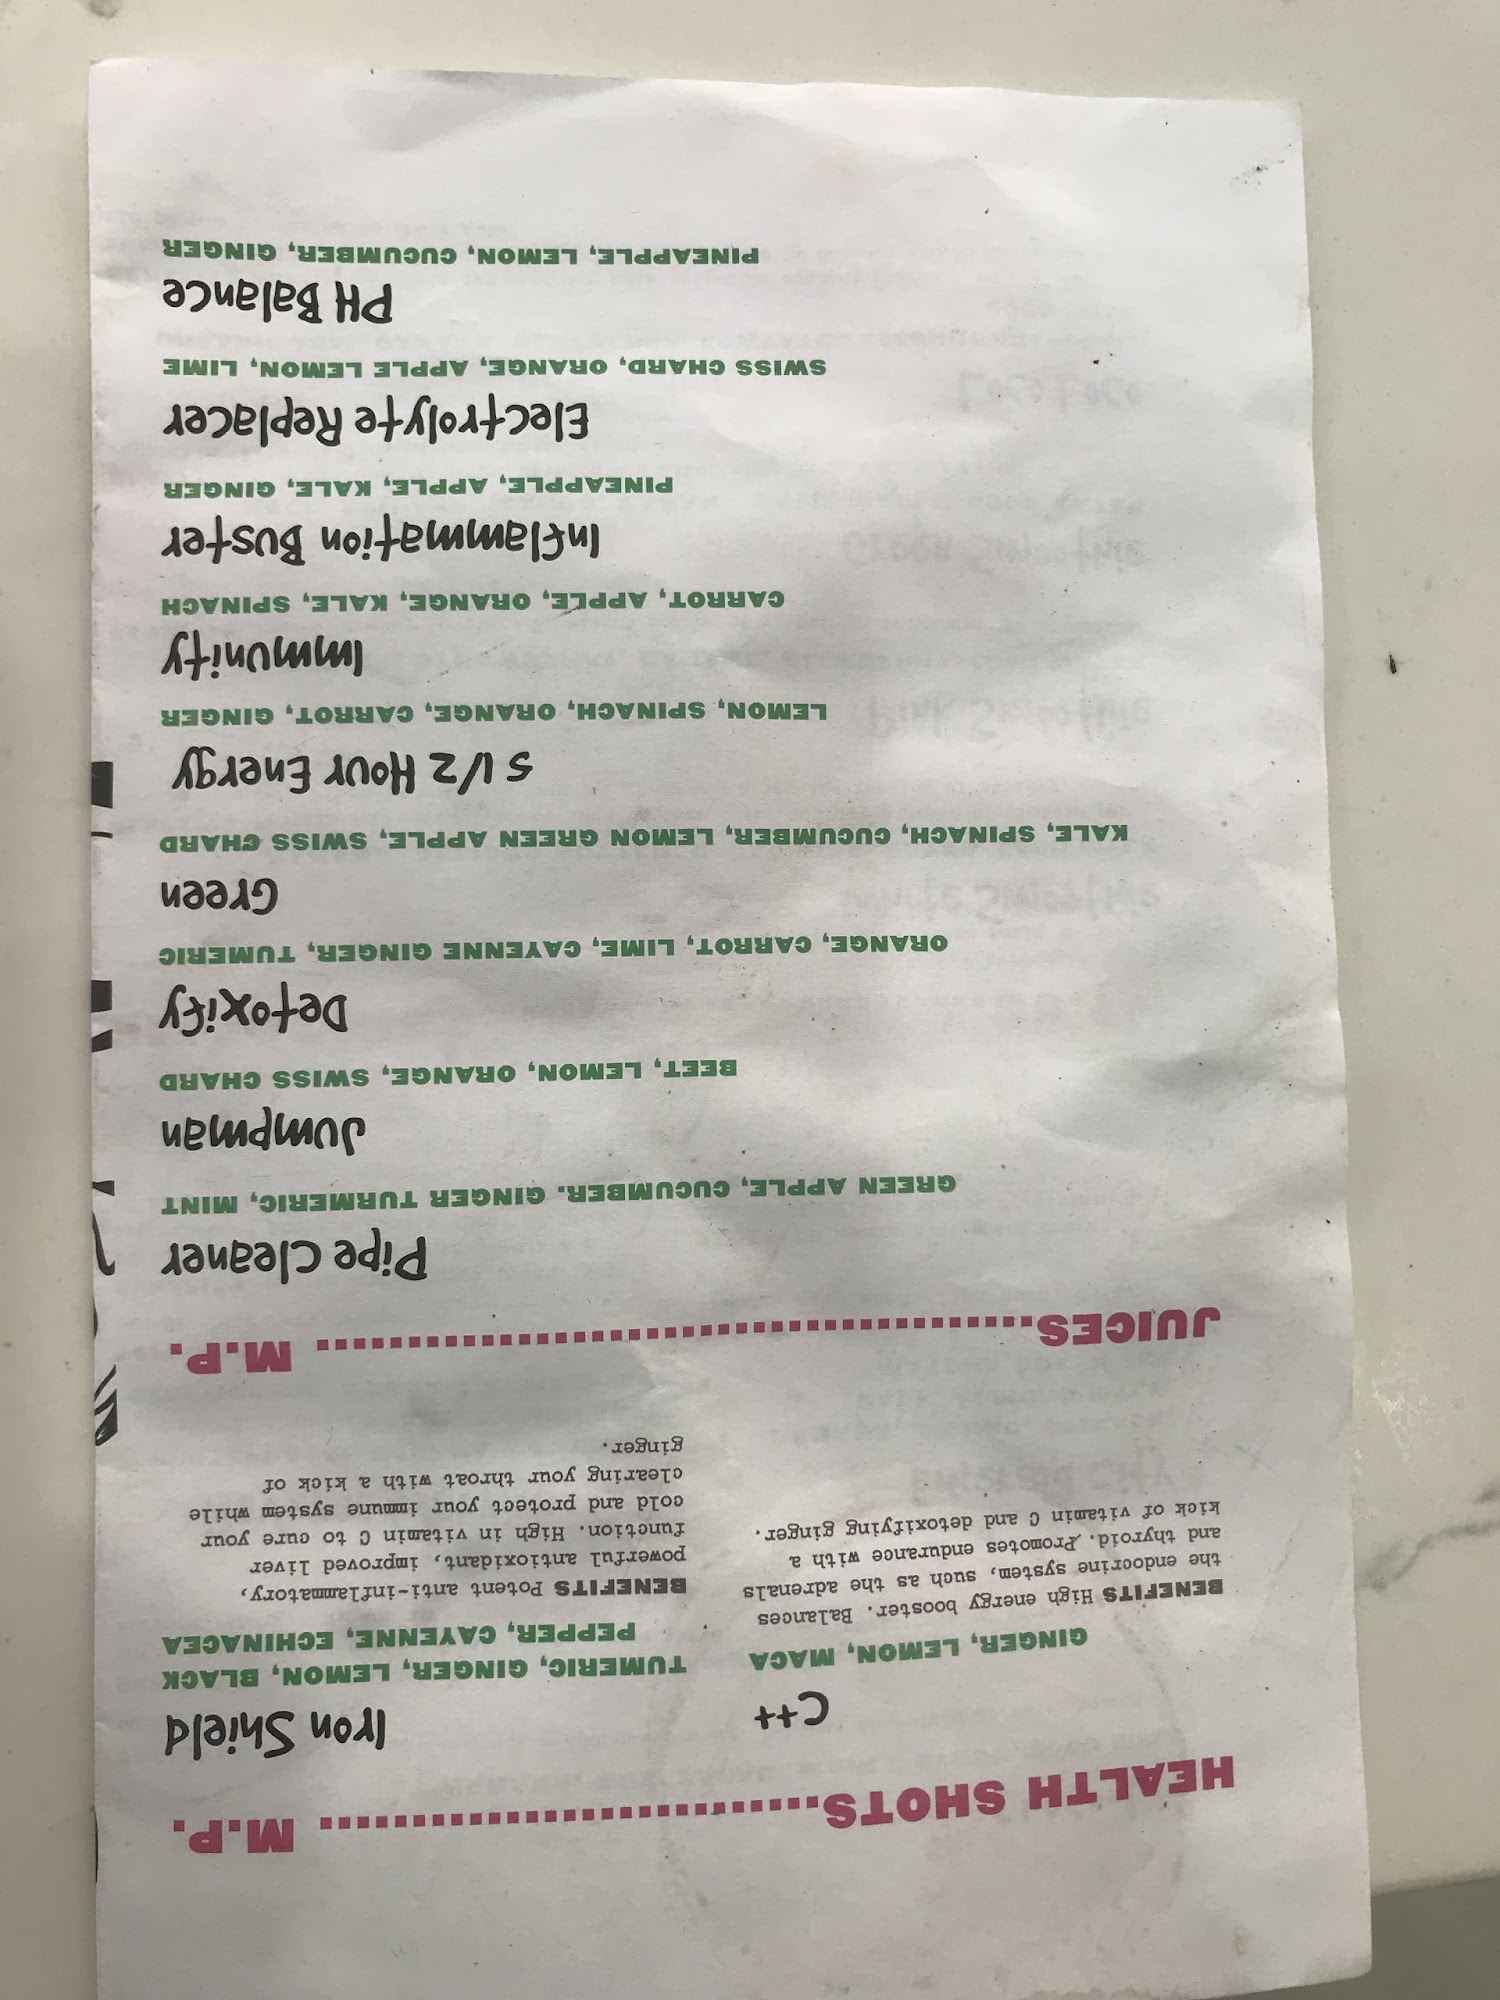 HEALTH SHOTS........................ M.P.
C++
GINGER, LEMON, MACA
BENEFITS High energy booster. Balances
the endocrine system, such as the adrenals
and thyroid. Promotes endurance with a
kick of vitamin C and detoxifying ginger.
Iron Shield
TUMERIC, GINGER, LEMON, BLACK
PEPPER, CAYENNE, ECHINACEA
BENEFITS Potent anti-inflammatory,
powerful antioxidant, improved liver
function. High in vitamin C to cure your
cold and protect your immune system while
clearing your throat with a kick of
ginger.
JUICES.................................... M.P.
Pipe Cleaner
GREEN APPLE, CUCUMBER. GINGER TURMERIC, MINT
Jumpman
BEET, LEMON, ORANGE, SWISS CHARD
Detoxify
ORANGE, CARROT, LIME, CAYENNE GINGER, TUMERIC
Green
KALE, SPINACH, CUCUMBER, LEMON GREEN APPLE, SWISS CHARD
5 1/2 Hour Energy
LEMON, SPINACH, ORANGE, CARROT, GINGER
Immunity
CARROT, APPLE, ORANGE, KALE, SPINACH
Inflammation Buster
PINEAPPLE, APPLE, KALE, GINGER
Electrolyte Replacer
SWISS CHARD, ORANGE, APPLE LEMON, LIME
PH Balance
PINEAPPLE, LEMON, CUCUMBER, GINGER